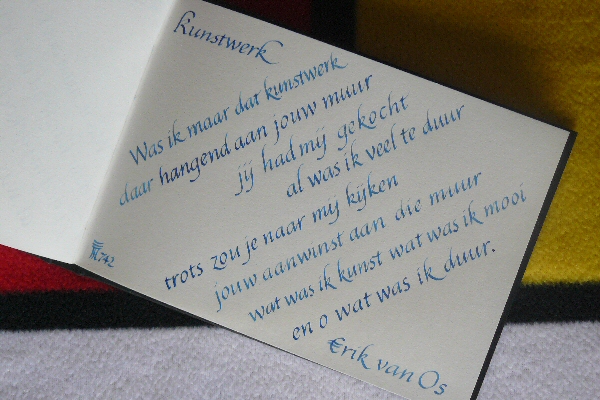 kunstwerk
Was ik maar dat kunstwerk
daar hangend aan jouw muur
jij had mij gekocht
al was ik veel te duur
trots zou je naar mij kijken
jouw aanwinst aan die muur
wat was ik kunst wat was ik mooi
en o wat was ik duur.
Erik van Os
742